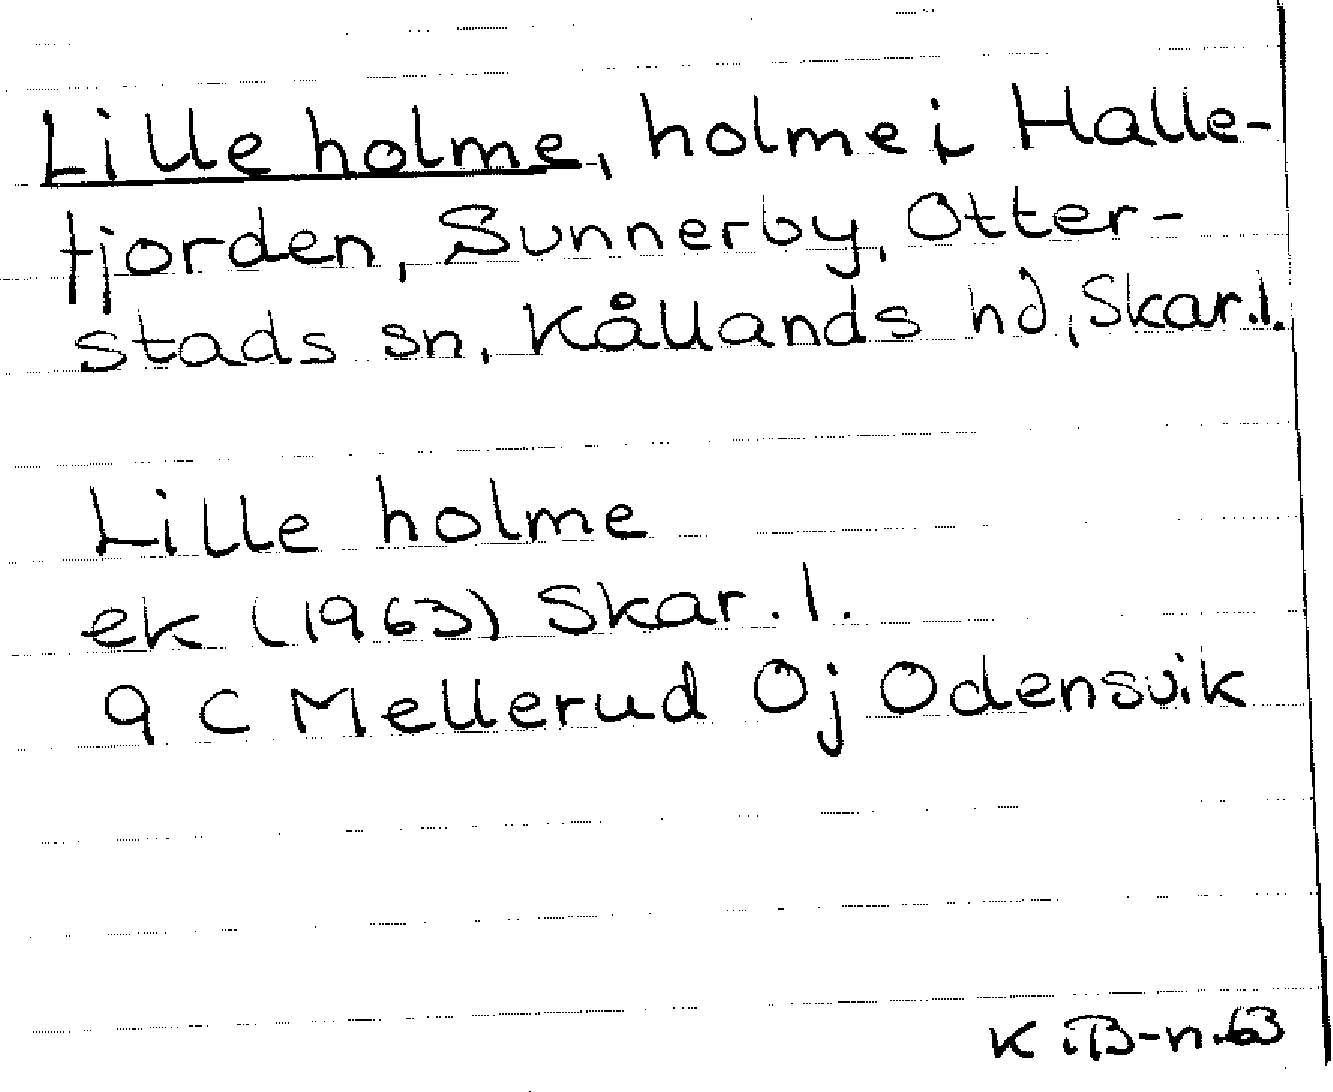 Lille holme, holme i Halle-
fjorden, Sunnerby, Otter-
stads sn, Kållands hd, Skar.l.
Lille holme
ek (1963) Skar.l.
9 C Mellerud Oj Odensvik
K iB-n.63